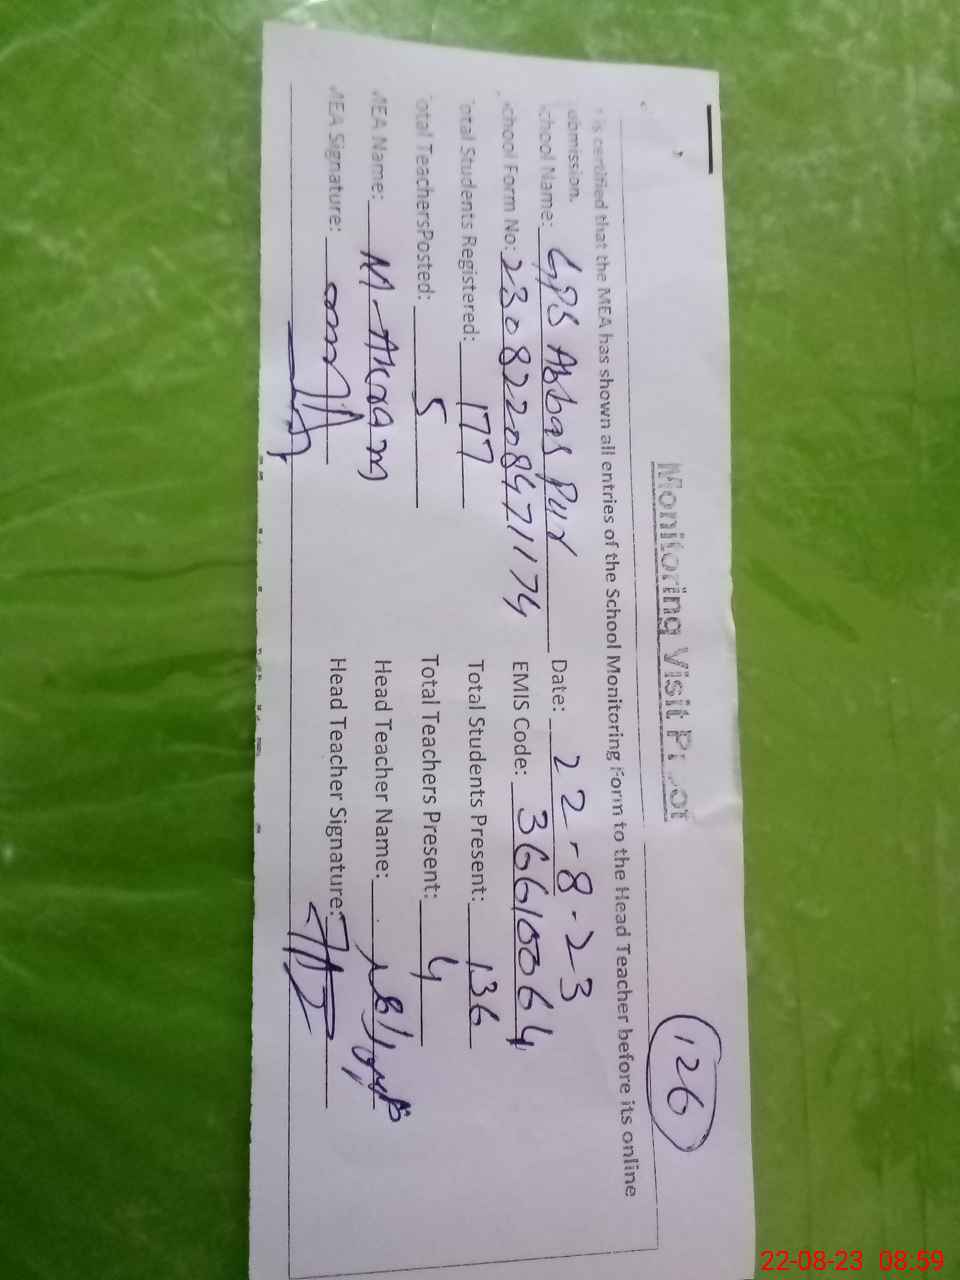 Monitoring Visit
126
is certified that the MEA has shown all entries of the School Monitoring Form to the Head Teacher before its online
ubmission.
chool Name: GPS Abbas Pur Date: 22-8-23
chool Form No: EMIS Code: 36610064
otal Students Registered: 177 Total Students Present: 136
otal TeachersPosted: 5 Total Teachers Present: 4
MEA Name: M-Akram Head Teacher Name:
MEA Signature: Head Teacher Signature:
22-08-23 08:59